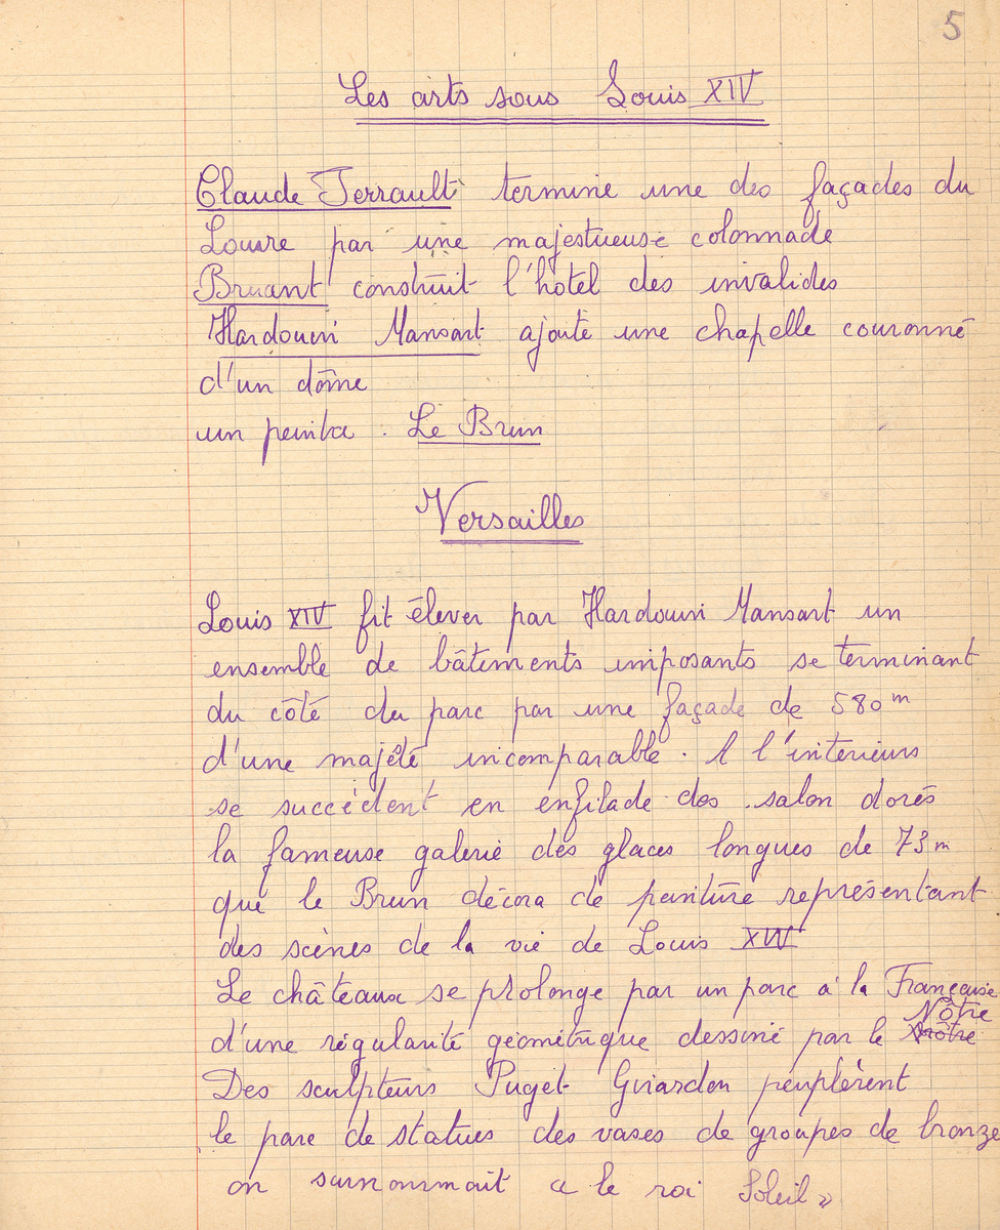 5
Les arts sous Louis XIV
Claude Perrault termine une des façades du
Louvre par une majestueuse colonnade
Bruant construit l'hôtel des invalides
Hardouin Mansart ajoute une chapelle couronné
d'un dôme
un peintre . Le Brun
Versailles
Louis XIV fit élever par Hardouin Mansart un
ensemble de bâtiments imposants se terminant
du côté du parc par une façade de 580 m
d'une majêté incomparable . A l'interieurs
se succèdent en enfilade des salon dorés
la fameuse galerie des glaces longues de 73 m
que le Brun décora de peinture représentant
des scènes de la vie de Louis XIV
Le châteaux se prolonge par un parc à la Française
d'une régularité géométrique dessiné par le Nôtre
Des sculpteurs Puget Girardon peuplèrent
le parc de statues des vases de groupes de bronze
on surnommait « le roi Soleil »